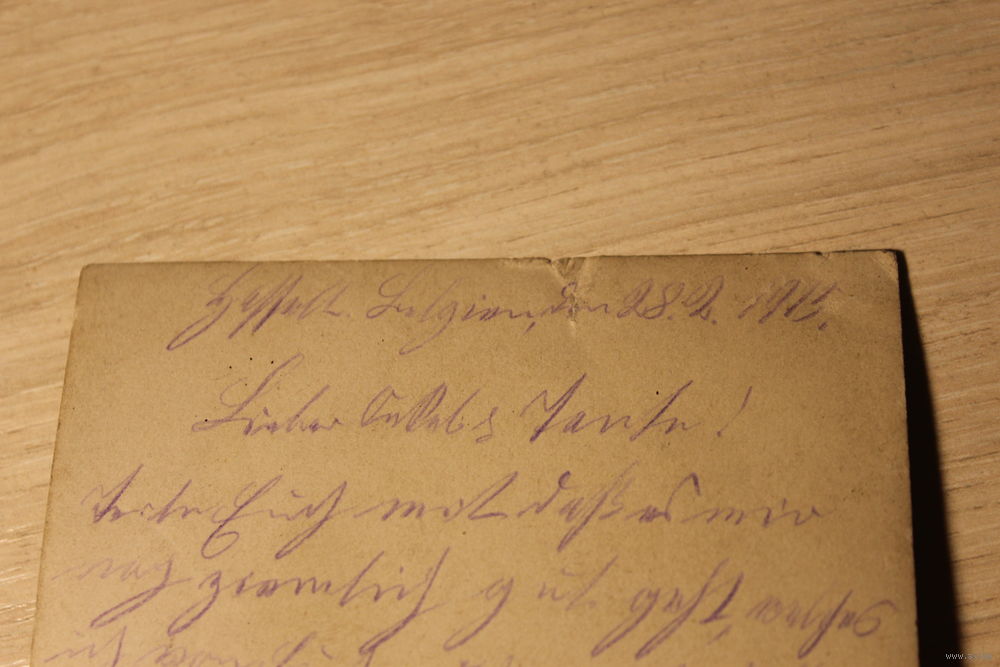 Hasselt. Belgien, den 28. 2. 1915.
Lieber Onkel & Tante!
Teile Euch mit daß es mir
noch ziemlich gut geht, welches
ich von Euch